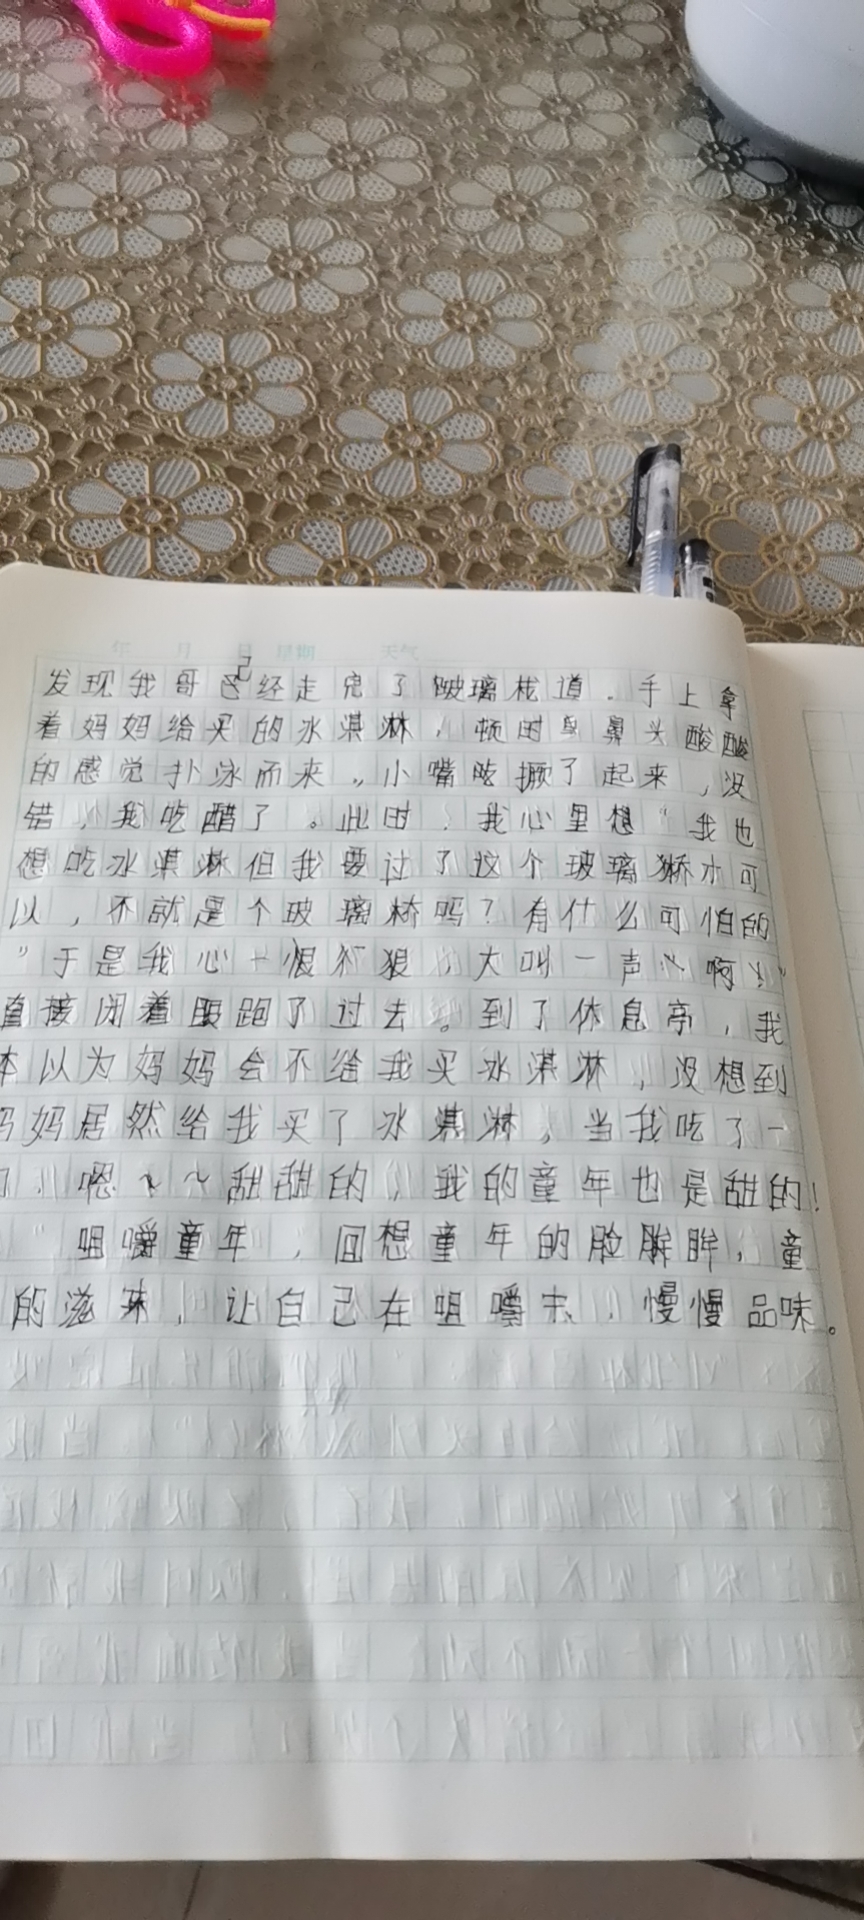 年 月 日 星期 天气
发现我哥已经走完了玻璃栈道。手上拿
着妈妈给买的冰淇淋，顿时鼻头酸酸
的感觉扑涌而来，小嘴撅了起来，没
错，我吃醋了。此时，我心里想“我也
想吃冰淇淋但我要过了这个玻璃桥才可
以，不就是个玻璃桥吗？有什么可怕的
”于是我心一恨狠，大叫一声“啊”
直接闭着眼跑了过去。到了休息亭，我
本以为妈妈会不给我买冰淇淋，没想到
妈妈居然给我买了冰淇淋，当我吃了一
口，嗯~~甜甜的，我的童年也是甜的！
咀嚼童年，回想童年的脸眸眸，童
的滋味，让自己在咀嚼中，慢慢品味。